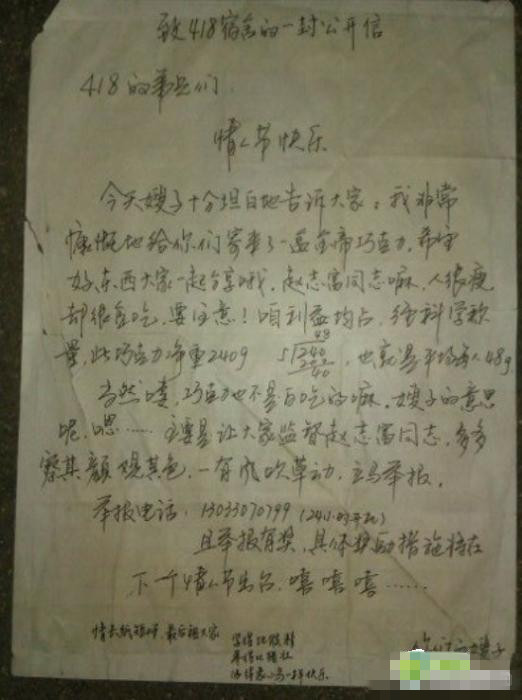 致418宿舍的一封公开信
418的弟兄们:
情人节快乐
今天嫂子十分坦白地告诉大家:我非常
慷慨地给你们寄来了一盒金帝巧克力,希望
好东西大家一起分享哦,赵志富同志嘛,人很瘦
却很贪吃,要注意!咱利益均占,经科学称
量,此巧克力净重240g 5 240 48 40 也就是平均每人48g
当然喽,巧克力也不是白吃的嘛,嫂子的意思
呢,嗯……主要是让大家监督赵志富同志,多多
察其颜观其色,一有风吹草动,立马举报。
举报电话:13033070799(24小时开机)
且举报有奖,具体奖励措施将在
下一个情人节出台,嘻嘻嘻……
情长纸短呀,最后祖大家
学习
快乐
你们 嫂子